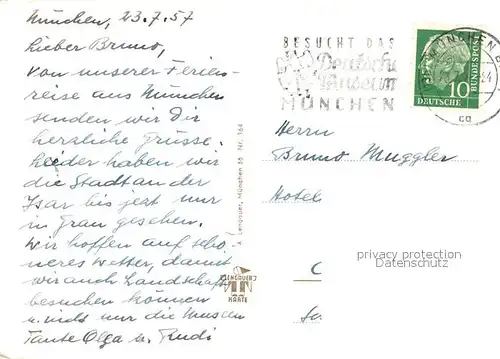 München, 23.7.57
Lieber Bruno,
von unserer Ferien-
reise aus München
senden wir Dir
herzliche Grüsse.
Leider haben wir
die Stadt an der
Isar bis jetzt nur
in Grau gesehen.
Wir hoffen auf schö-
neres Wetter, damit
wir auch Landschaft
besuchen können
u. nicht nur die Museen
Tante Olga u. Rudi
A. Lengauer, München 55 Nr. 164
LENGAUER
KARTE
BESUCHT DAS
Deutsche
Museum
MÜNCHEN
MÜNCHEN
cq
BUNDESPOST
10
DEUTSCHE
Herrn
Bruno Muggler
Hotel
privacy protection
Datenschutz
C